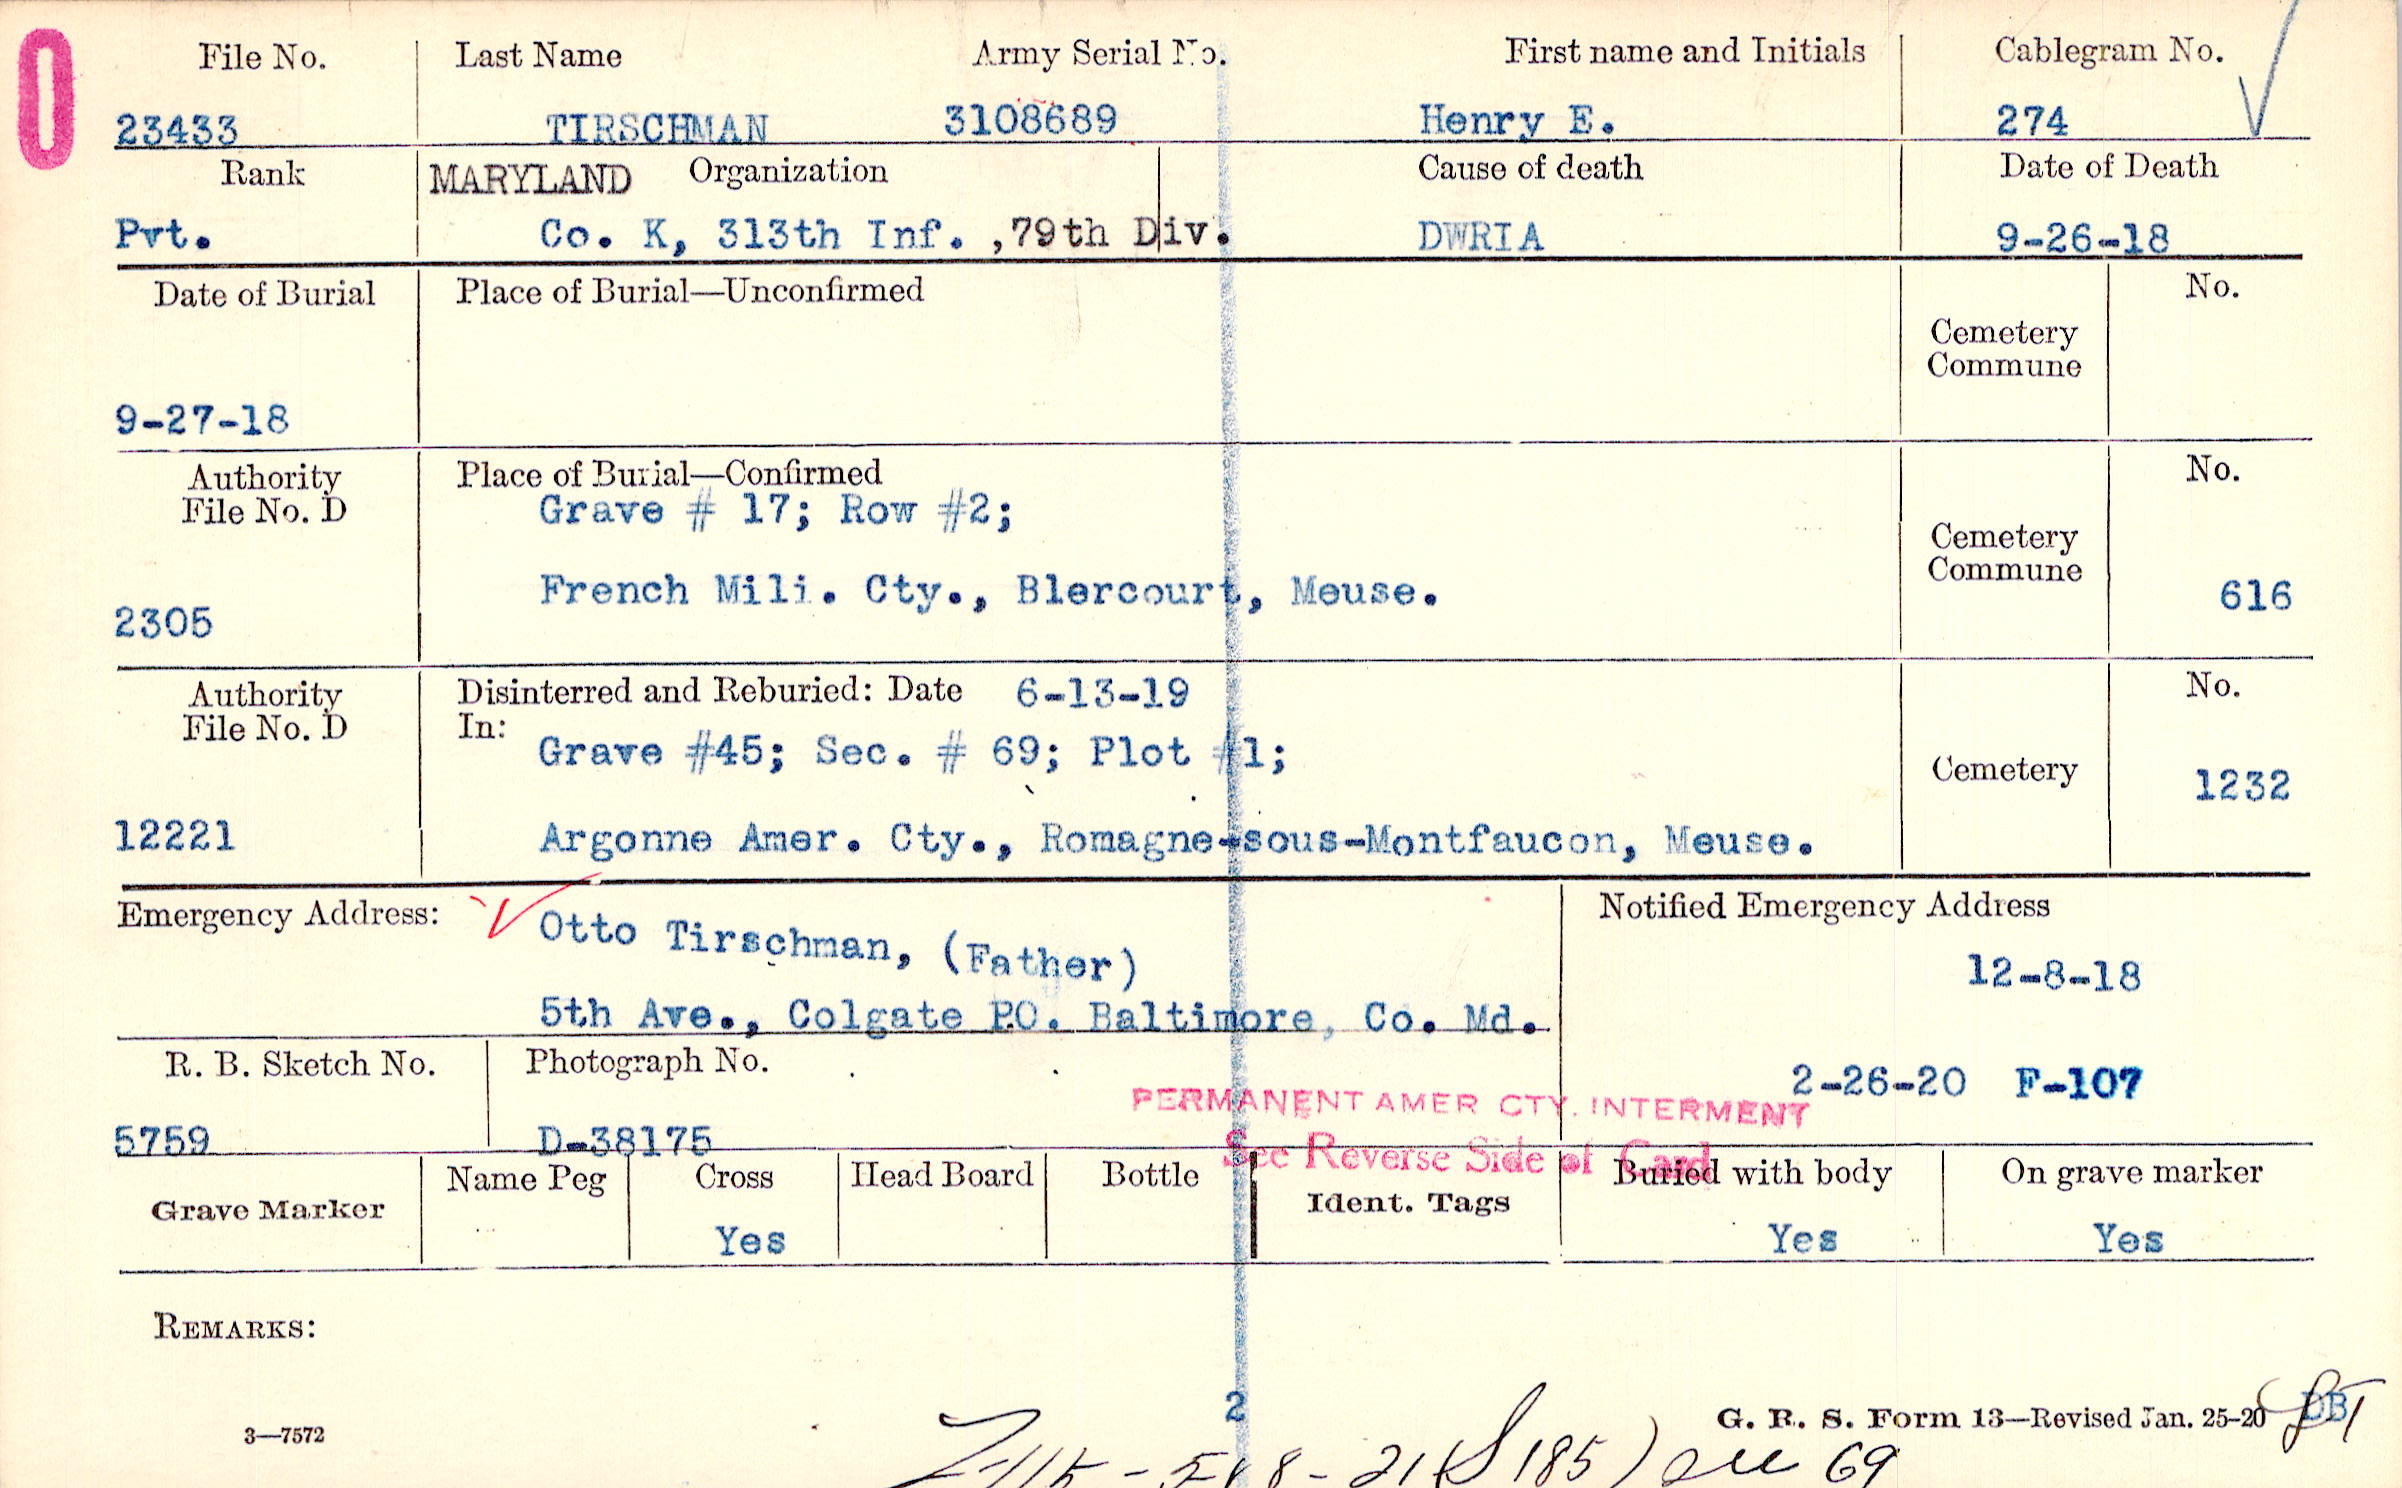 0
File No. Last Name Army Serial No. First name and Initials Cablegram No.
23433 TIRSCHMAN 3108689 Henry E. 274
Rank MARYLAND Organization Cause of death Date of Death
Pvt. Co. K, 313th Inf. ,79th Div. DWRIA 9-26-18
Date of Burial Place of Burial—Unconfirmed No.
Cemetery
Commune
9-27-18
Authority Place of Burial—Confirmed No.
File No. D Grave # 17; Row #2;
Cemetery
Commune
French Mili. Cty., Blercourt, Meuse. 616
2305
Authority Disinterred and Reburied: Date 6-13-19 No.
File No. D In:
Grave #45; Sec. # 69; Plot #1;
Cemetery 1232
12221 Argonne Amer. Cty., Romagne-sous-Montfaucon, Meuse.
Emergency Address: Otto Tirschman, (Father) Notified Emergency Address
12-8-18
5th Ave., Colgate PO. Baltimore, Co. Md.
R. B. Sketch No. Photograph No.
2-26-20 F-107
PERMANENT AMER CTY. INTERMENT
5759 D-38175
See Reverse Side of Card
Grave Marker Name Peg Cross Head Board Bottle Ident. Tags Buried with body On grave marker
Yes Yes Yes
REMARKS:
2
3—7572 G. R. S. Form 13—Revised Jan. 25-20 DB
21 (S 185) see 69